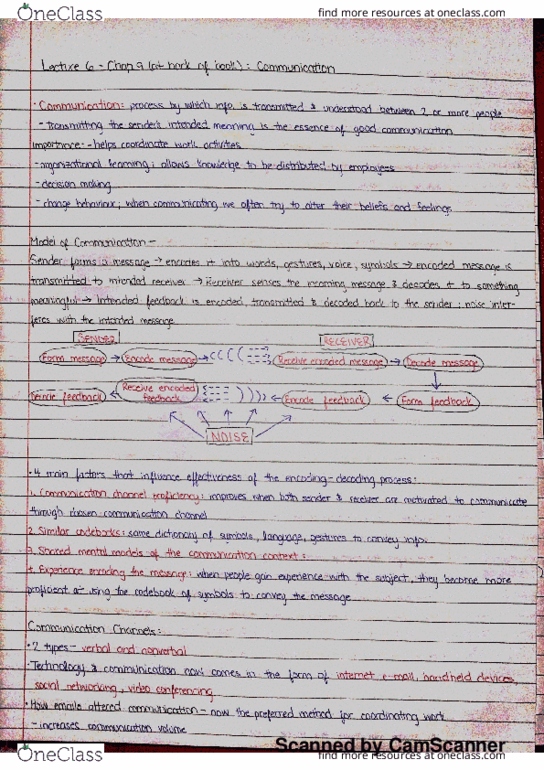 OneClass
find more resources at oneclass.com
Lecture 6 - Chap 9 (at back of book): Communication
· Communication: process by which info. is transmitted & understood between 2 or more people
- transmitting the sender's intended meaning is the essence of good communication
Importance: - helps coordinate work activities
- organizational learning; allows knowledge to be distributed by employees
- decision making
- change behaviour; when communicating we often try to alter their beliefs and feelings
Model of Communication -
Sender forms a message → encodes it into words, gestures, voice, symbols → encoded message is
transmitted to intended receiver → Receiver senses the incoming message & decodes it to something
meaningful → Intended feedback is encoded, transmitted & decoded back to the sender; noise inter-
feres with the intended message
SENDER
RECEIVER
Form message → Encode message → Receive encoded message → Decode message
Decode feedback ← Receive encoded feedback ← Encode feedback ← Form feedback
NOISE
· 4 main factors that influence effectiveness of the encoding-decoding process:
1. Communication channel proficiency: improves when both sender & receiver are motivated to communicate
through chosen communication channel
2. Similar codebooks: same dictionary of symbols, language, gestures to convey info.
3. Shared mental models of the communication context:
4. Experience encoding the message: when people gain experience with the subject, they become more
proficient at using the codebook of symbols to convey the message
Communication Channels:
· 2 types - verbal and nonverbal
· Technology & communication now comes in the form of internet e-mail, handheld devices,
social networking, video conferencing.
· How emails altered communication - now the preferred method for coordinating work
- increases communication volume
Scanned by CamScanner
OneClass
find more resources at oneclass.com